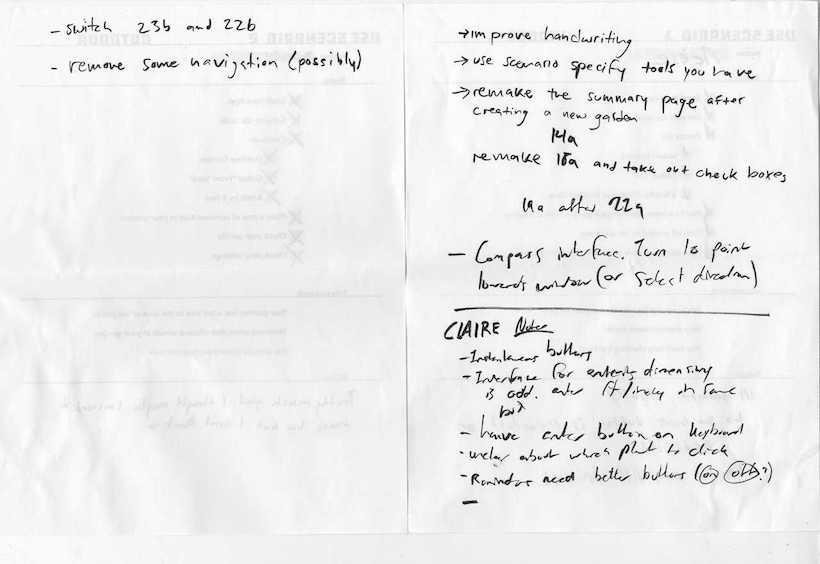 - switch 23b and 22b
- remove some navigation (possibly)
→ improve handwriting
→ use scenario specify tools you have
→ remake the summary page after
creating a new garden
14a
remake 18a and take out check boxes
19a after 22a
- Compass interface. Turn to point
towards window (or select direction)
CLAIRE Notes
- Instantaneous buttons
- Interface for entering dimensions
is odd. enter ft/inches at same
box
- have enter button on keyboard
- unclear about which plant to click
- Reminders need better buttons (on off?)
-